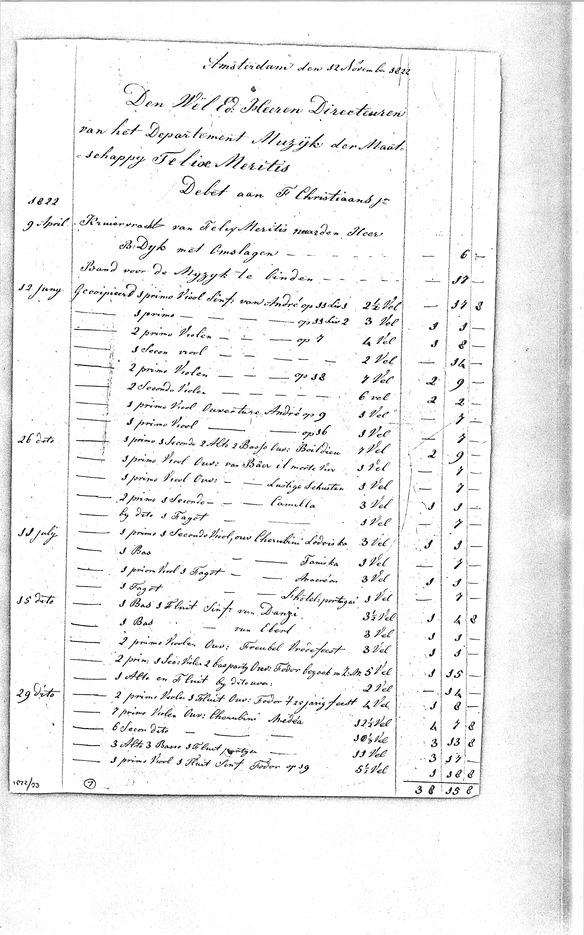 Amsterdam den 12 November 1822
Den Wël Ed. Heeren Directeuren
van het Departement Muzÿk der Maat-
schappy Felix Meritis
Debet aan F Christiaans jr
1822
9 April Kruiervracht van Felix Meritis naar den Heer
B: Dyk met Omslagen — 6 —
Band voor de Myzyk te binden — 17 —
12 Juny Gecopieerd 1 primo Viool Sinf: van André op 11 Liv 1 2½ Vel — 17 8
1 primo — op 11 Liv 2 3 Vel 1 1 —
2 primo Violen — op 7 4 Vel 1 8 —
1 Secon viool — 2 Vel — 14 —
2 primo Violen — op 18 7 Vel 2 9 —
2 Secondo Violen — 6 vel 2 2 —
1 primo Viool Ouverture André op 9 1 Vel — 7 —
1 primo Viool — op 16 1 Vel — 7 —
26 dito 1 primo 1 Secondo 2 Alto 2 Basso Ouv: Boildieu 7 Vel 2 9 —
1 primo Viool Ouv: van Bäer il morto Vivo 1 Vel — 7 —
1 primo Viool Ouv: — Lustige Schuster 1 Vel — 7 —
2 primo 1 Secondo — Camilla 3 Vel 1 1 —
by dito 1 Fagot 1 Vel — 7 —
11 July 1 primo 1 Secondo Viool, ouv Cherubini Lodoiska 3 Vel 1 1 —
1 Bas — Faniska 1 Vel — 7 —
1 primo Viool 1 Fagot — Anacréon 3 Vel 1 1 —
1 Fagot — 1 Vel — 7 —
15 dito 1 Bas 1 Fluit Sinf: van Danzi 3½ Vel 1 4 8
1 Bas — van Eberl 3 Vel 1 1 —
2 primo Violen Ouv: Freubel Vredefeest 3 Vel 1 1 —
2 prim: 1 Sec: Violen 2 basparty Ouv: Fodor 5 Vel 1 15 —
1 Alto en Fluit by dito ouv: 2 Vel — 14 —
29 dito 2 primo Violen 1 Fluit Ouv: Fodor feest 4 Vel 1 8 —
7 primo Violen Ouv: Cherubini Médéa 12½ Vel 4 7 8
6 Secon dito — 10½ Vel 3 13 8
3 Alto 3 Basso 1 Fluit 11 Vel 3 17 —
1 primo Viool 1 Fluit Sinf Fodor op 19 5½ Vel 1 18 8
38 15 8
1822/23 7